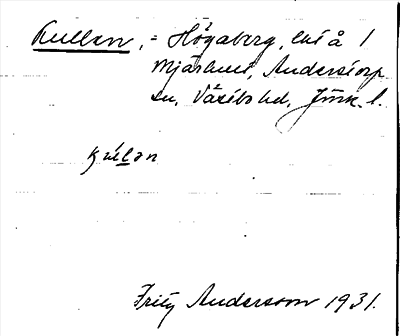 Kullen, = Högaberg, lht å 1
Mjärhult, Anderstorp
sn, Västbo hd, Jönk. l.
Fritz Andersson 1931.